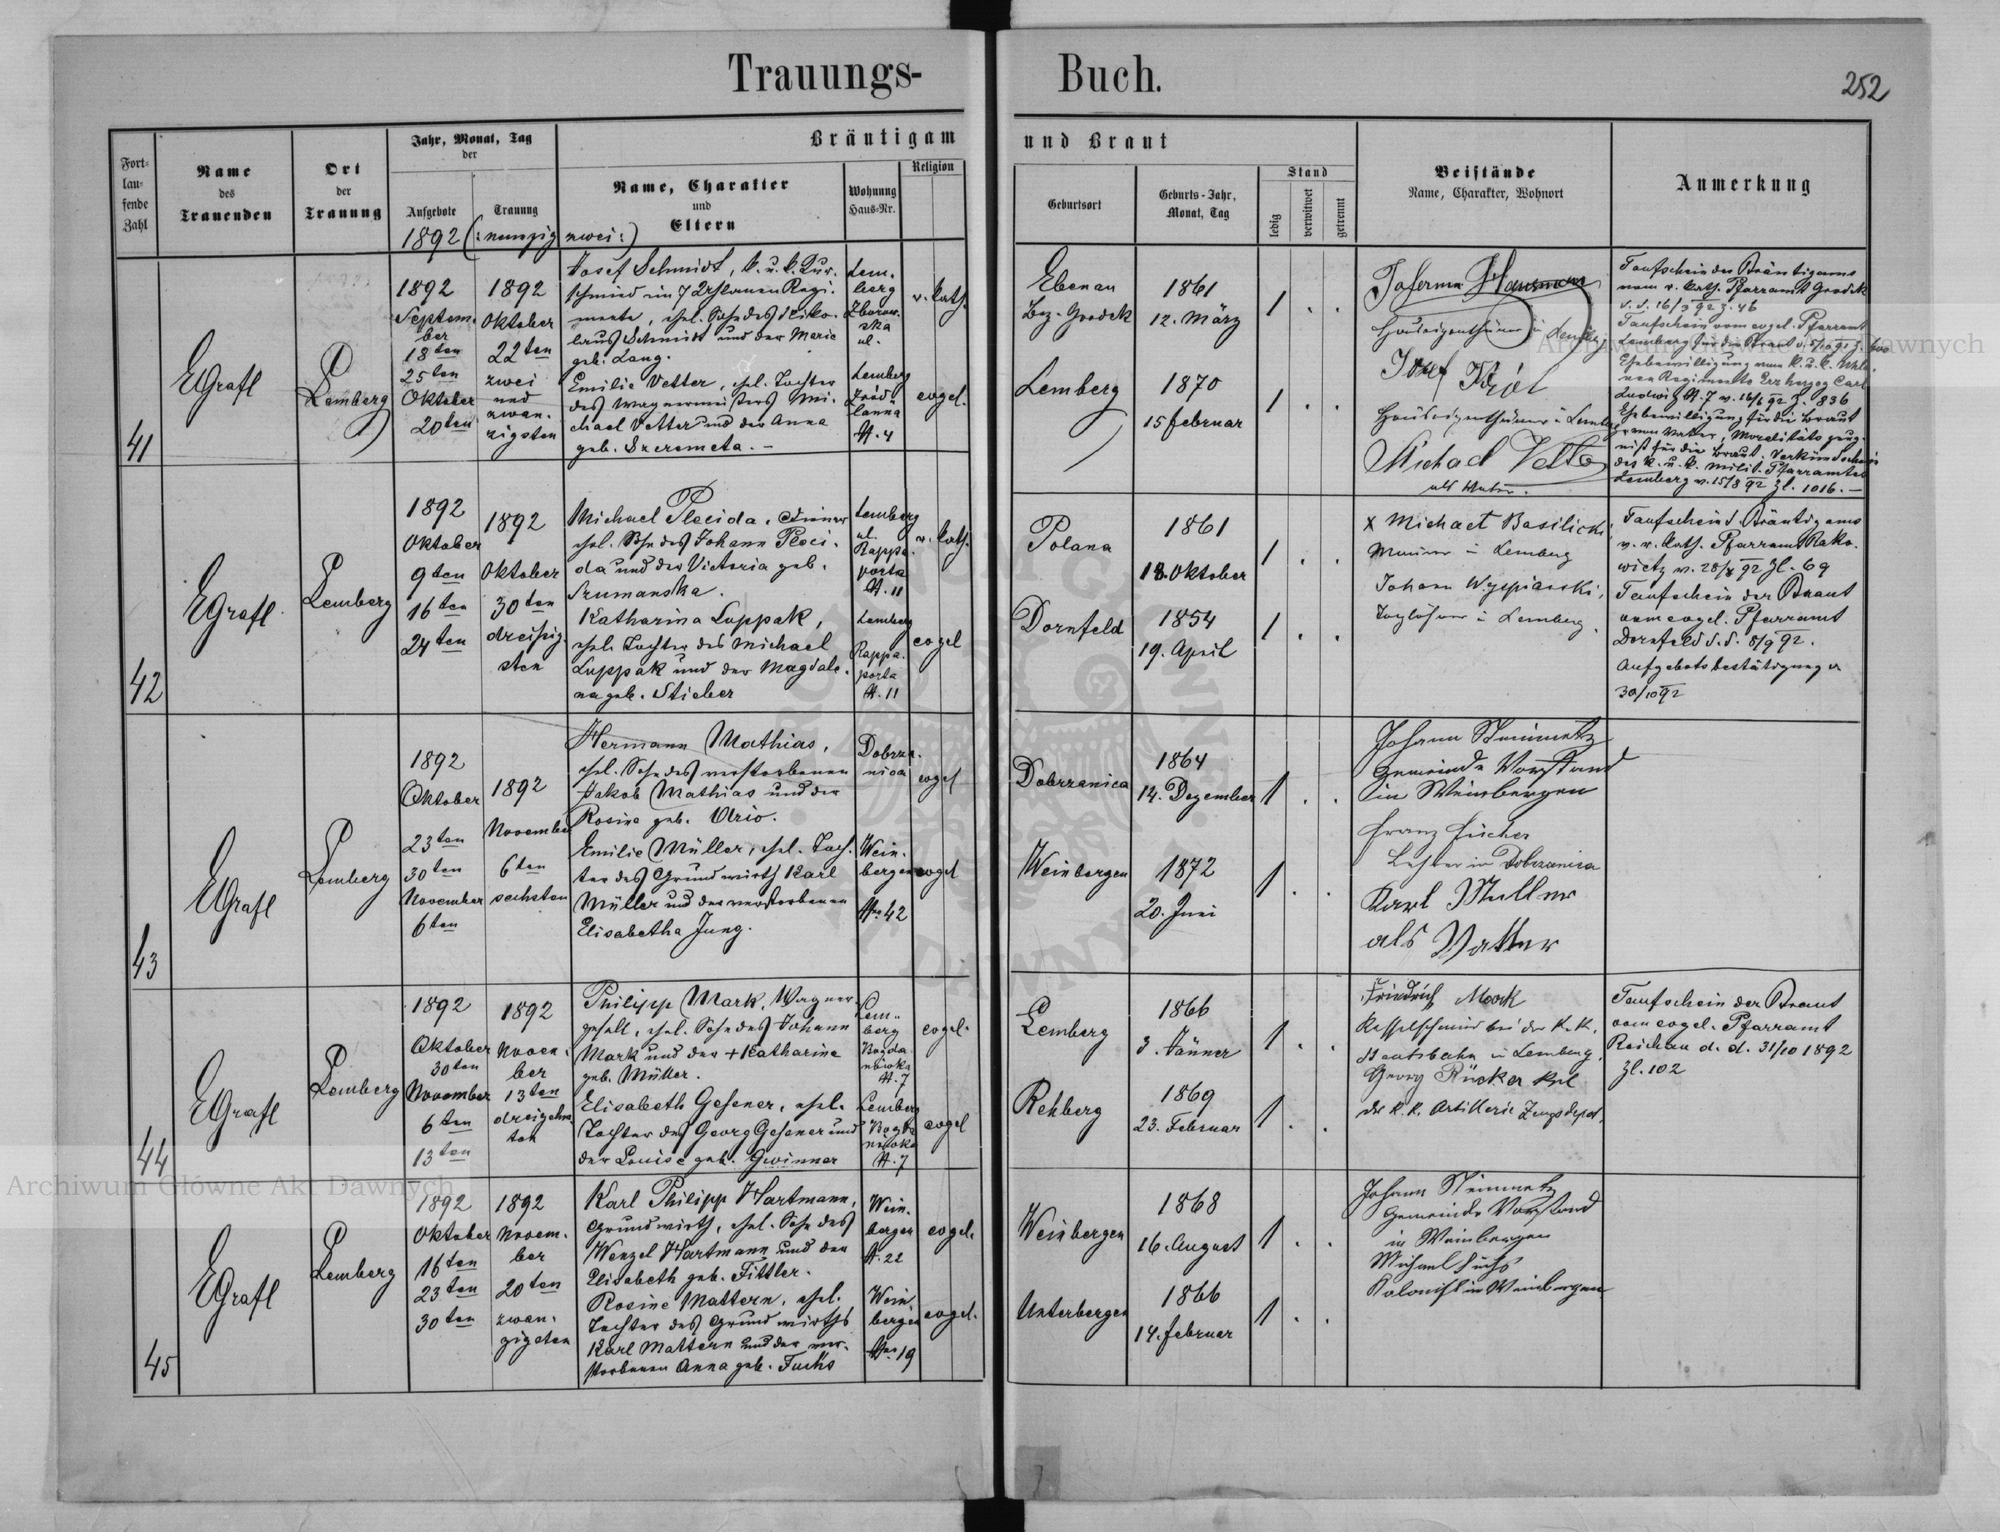 Trauungs-
Buch.
252
Fort-
lau-
fende
Zahl
Name
des
Trauenden
Ort
der
Trauung
Jahr, Monat, Tag
der
Aufgebote
Trauung
1892 (: neunzig zwei :)
Bräutigam
Name, Charakter
und
Eltern
Wohnung
Haus-Nr.
Religion
und Braut
Geburtsort
Geburts-Jahr,
Monat, Tag
Stand
ledig
verwitwet
getrennt
Beistände
Name, Charakter, Wohnort
Anmerkung
41
EGrafl
Lemberg
1892
Septem-
ber
18ten
25ten
Oktober
20ten
1892
Oktober
22ten
zwei
und
zwan-
zigsten
Josef Schmidt, k. u. k. Kur-
schmied im 7 Uhlanen Regi-
mente, ehel. Sohn des Niko-
laus Schmidt und der Marie
geb. Lang.
Emilie Vetter, ehel. Tochter
des Wagnermeisters Mi-
chael Vetter und der Anna
geb. Szeremeta. -
Lem-
berg
Zborow-
ska
ul.
Lemberg
Gród-
N. 4
r. kath.
evgel.
Ebenau
Bez. Grodek
1861
12. März
1 . .
Lemberg
1870
15 Februar
1 . .
Johann Hausmann
Hauseigenthümer in Lemberg
Josef
Hauseigenthümer in Lemberg
Michael Vetter
als Vater.
Taufschein des Bräutigams
vom r. kath. Pfarramt Grodek
d. d. 16/3 92 Z. 46
Taufschein vom evgel. Pfarramt
Lemberg für die Braut
Ehebewilligung vom k. u. k. Uhla-
nen Regimente Erzherzog Carl
Ludwig N. 7 v. 16/6 92 Z. 836
Ehebewilligung für die Braut
vom Vater, Moralitätszeug-
niß für die Braut. Verkündschein
des k. u. k. Milit. Pfarramtes
Lemberg v. 15/8 92 Zl. 1016. -
42
EGrafl
Lemberg
1892
Oktober
9ten
16ten
24ten
1892
Oktober
30ten
dreißig
sten
Michael Plecida, Diener
ehel. Sohn des Johann Pleci-
da und der Victoria geb.
Szumanska.
Katharina Luppak,
ehel. Tochter des Michael
Luppak und der Magdale-
na geb. Stieber
Lemberg
ul.
Rappa-
porta
N. 11
Lemberg
Rappa-
porta
N. 11
r. kath.
evgel
Polana
1861
18. Oktober
1 . .
Dornfeld
1854
19. April
1 . .
x Michael Basilicki,
Maurer in Lemberg
Johann Wyspianski,
Taglöhner in Lemberg.
Taufschein d. Bräutigams
v. r. kath. Pfarramt Rako-
wietz v. 28/8 92 Zl. 69
Taufschein der Braut
vom evgel. Pfarramt
Dornfeld d. d. 8/9 92.
Aufgebotsbestätigung v
30/10 92
43
EGrafl
Lemberg
1892
Oktober
23ten
30ten
November
6ten
1892
November
6ten
sechsten
Hermann Mathias,
ehel. Sohn des verstorbenen
Jakob Mathias und der
Rosine geb. Urio.
Emilie Müller, ehel. Toch-
ter des Grundwirth Karl
Müller und der verstorbenen
Elisabetha Jung.
Dobrza-
nica
Wein-
bergen
Nro 42
evgel
evgel
Dobrzanica
1864
14. Dezember
1 . .
Weinbergen
1872
20. Juni
1 . .
Johann Steinmetz
Gemeinde Vorstand
in Weinbergen
Franz Fücher
Lehrer in Dobrzanica
Karl Muller
als Vatter
44
EGrafl
Lemberg
1892
Oktober
30ten
November
6ten
13ten
1892
Novem-
ber
13ten
dreizehn
ten
Philipp Mark, Wagner-
gesell, ehel. Sohn des Johann
Mark und der + Katharine
geb. Müller.
Elisabeth Gesener, ehel.
Tochter des Georg Gesener und
der Louise geb. Gwinner
Lem-
berg
Bogda-
nówka
N. 7
Lemberg
Bogda
nówka
N. 7
evgel.
evgel
Lemberg
1866
3. Jänner
1 . .
Rehberg
1869
23. Februar
1 . .
Friedrich Mark
Kesselschmied bei der k. k.
Staatsbahn in Lemberg,
Georg Rücker
der k. k. Artillerie Zeugsdepot,
Taufschein der Braut
vom evgel. Pfarramt
Reichau d. d. 31/10 1892
Zl. 102
45
EGrafl
Lemberg
1892
Oktober
16ten
23ten
30ten
1892
Novem-
ber
20ten
zwan-
zigsten
Karl Philipp Hartmann,
Grundwirth, ehel. Sohn des
Wenzel Hartmann und der
Elisabeth geb. Fittler.
Rosine Mattern, ehel.
Tochter des Grundwirths
Karl Mattern und der ver-
storbenen Anna geb. Fuchs
Wein-
bergen
N. 22
Wein-
bergen
Nro 19
evgel.
evgel.
Weinbergen
1868
16. August
1 . .
Unterbergen
1866
14. Februar
1 . .
Johann Steinmetz
Gemeinde Vorstand
in Weinbergen
Michael Fuchs
Kolonist in Weinbergen
Archiwum Główne Akt Dawnych
Archiwum Główne Akt Dawnych